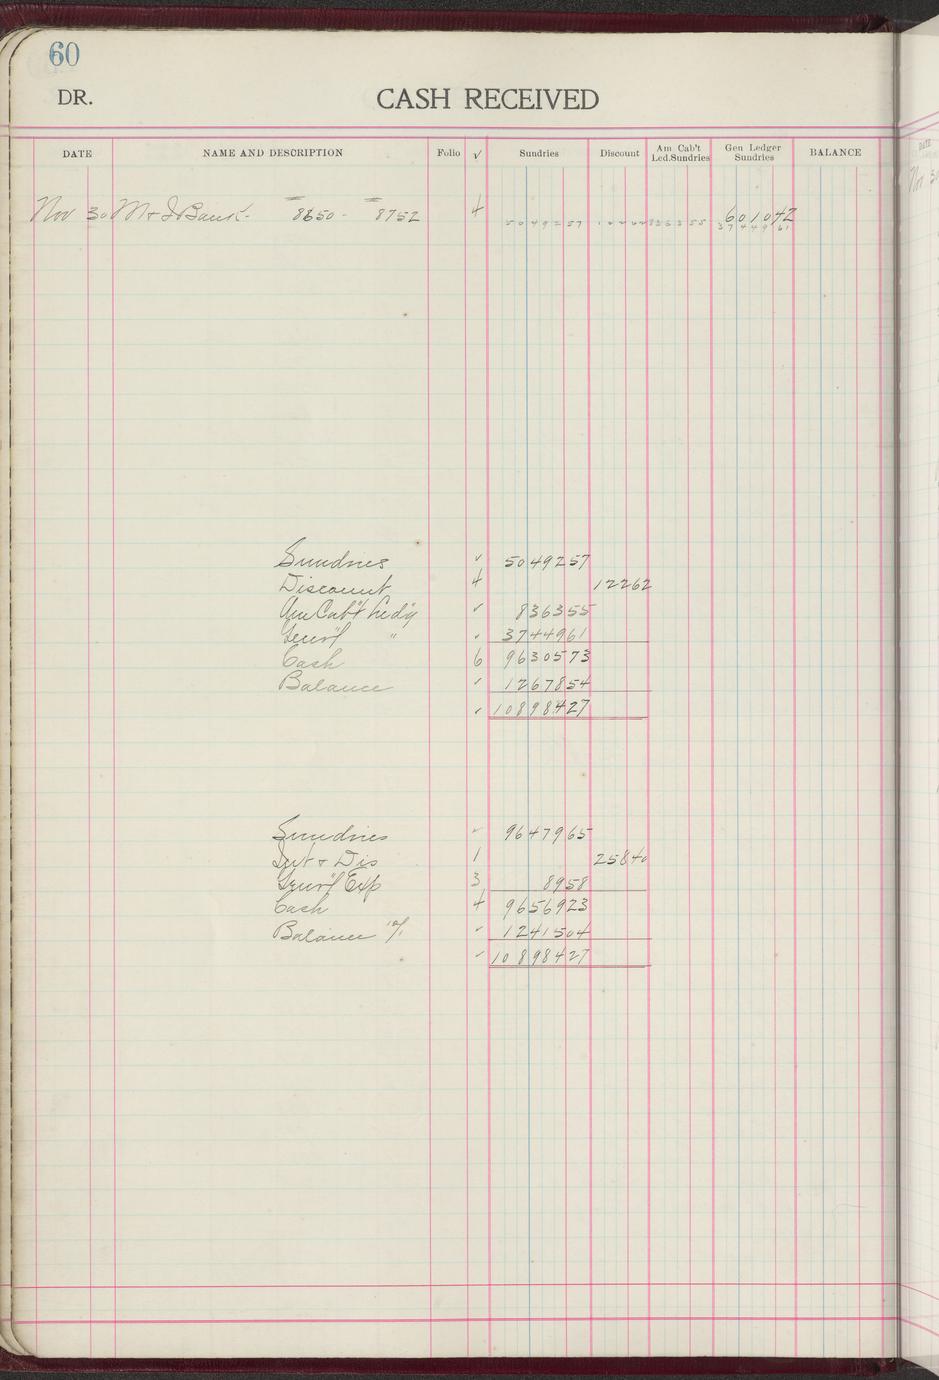 60
DR. CASH RECEIVED
DATE NAME AND DESCRIPTION Folio √ Sundries Discount Am Cab't Led.Sundries Gen Ledger Sundries BALANCE
Nov 30 M & I Bank - 8650 - 8752 4 601042
5049257 836355 3744961
Sundries √ 5049257
Discount 4 12262
Am Cab't Ledg √ 836355
Genr'l " √ 3744961
Cash 6 9630573
Balance √ 1267854
√ 10898427
Sundries √ 9647965
Int & Dis 1 25840
Genr'l Exp 3 8958
Cash 4 9656923
Balance √ 1241504
√ 10898427
DATE
Nov 30